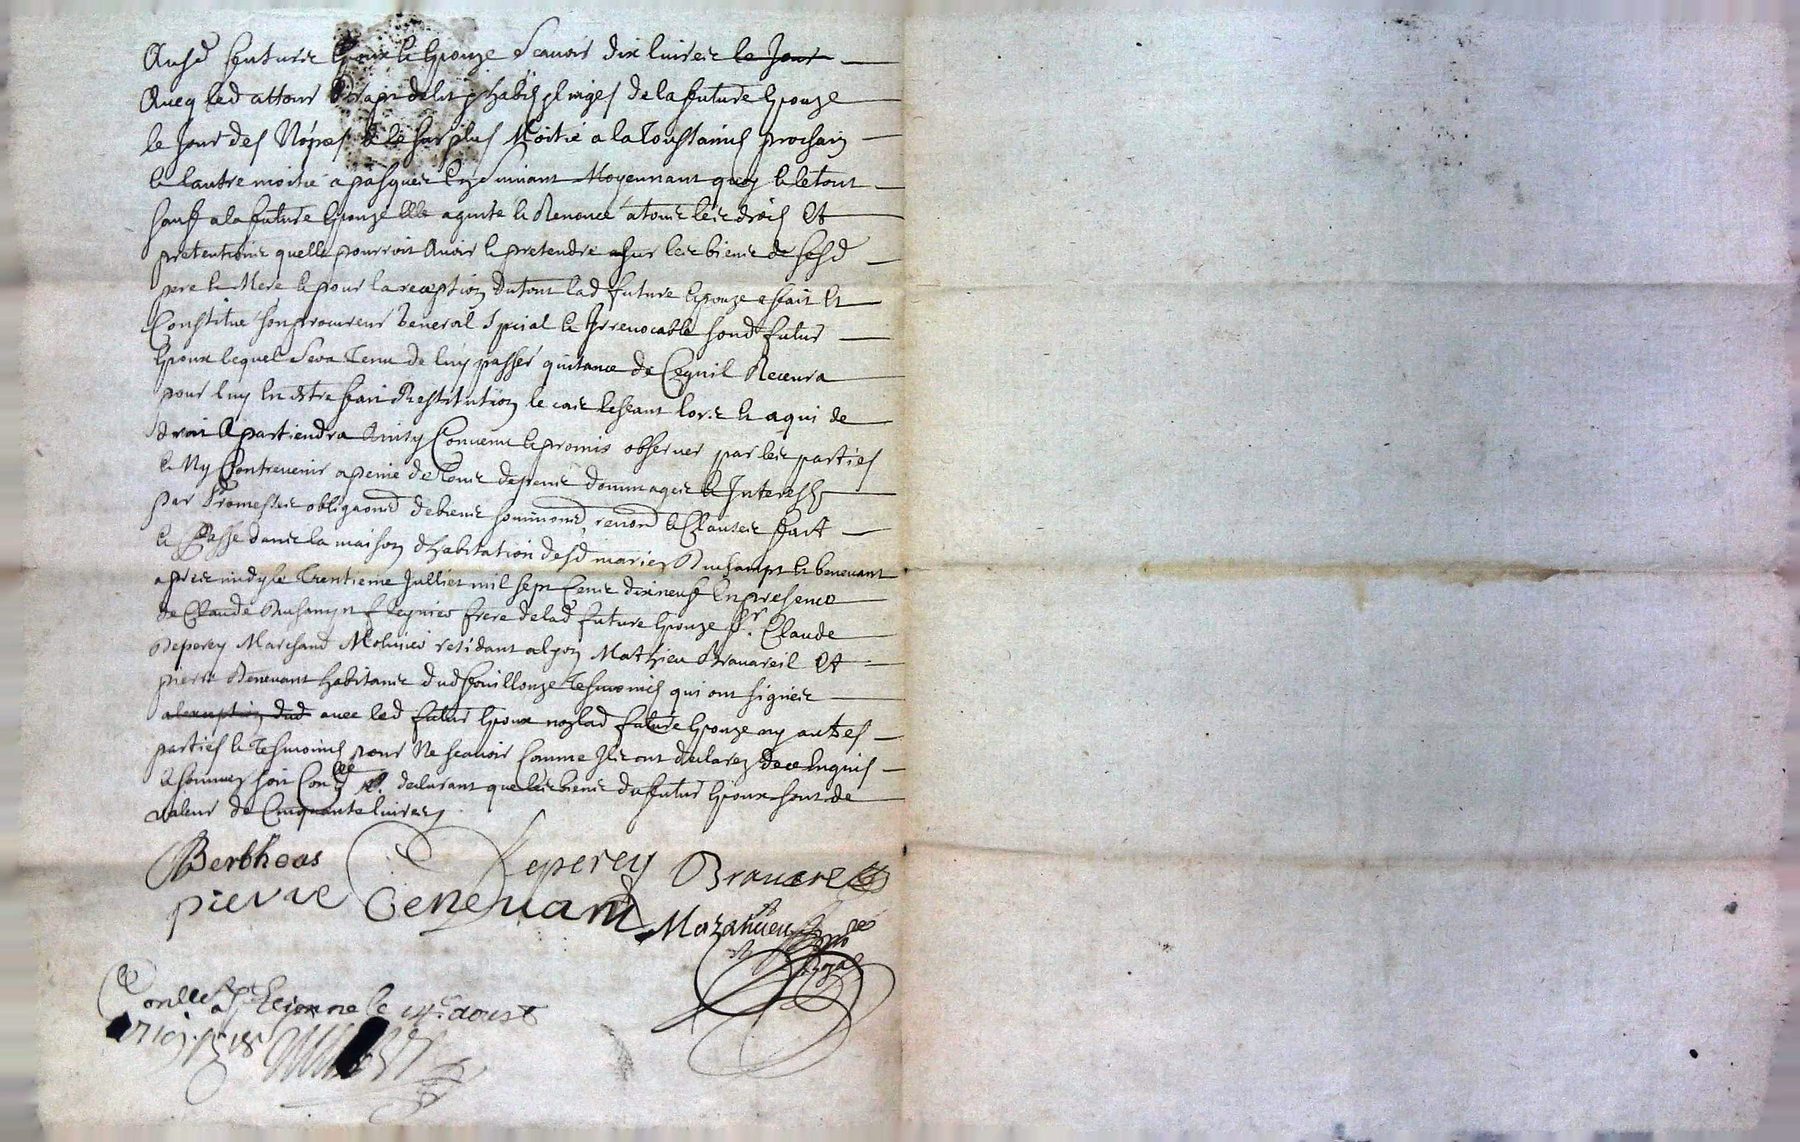 Ausd futurs Epoux & Epouze Scavoir dix livres le Jour
Avecq led attour de la future Epouze
le Jour des Nopces & le surplus Moitié a la Toussaincts prochain
& lautre moitié a pasques Ensuivant Moyennant quoy & le tout
sauf a la future Epouze Elle aquitte & Renonce a tous les droicts Et
pretentions quelle pourroit Avoir & pretendre sur les biens de sesd
pere & Mere & pour la reception dutout lad future Epouze a fait Et
Constitué son procureur General Special & Irrevocable sond futur
Epoux lequel Sera Tenu de luy passer quitance de Ce quil Recevra
pour luy En Estre fait Restitution le cas Escheant lors Et a qui de
droit Apartiendra Ainsy Convenu & promis observer par les parties
& Ny Contrevenir a peine de Tous despens dommages & Interests
par Promesses obligaons de biens soumions renons & Clauses fait
& Passé dans la maison dhabitation desd mariez Duchampt Et benevant
apres midy le Trentieme Juillet mil sept Cens dixneuf En presence
de Claude Duchampt frere de lad future Epouze Sr. Claude
Deperey Marchand Molinier residant a lyon Mathieu Bravareil Et
pierre Benevant habitans dud fouillouze Tesmoings qui ont signés
avec led futur Epoux non lad future Epouze ny autres
parties & Tesmoins pour Ne scavoir comme Ils ont declarez de ce Enquis
& sommez soit Conllé declarant que les biens du futur Epoux sont de
valeur de Cinquante livres
Bertheas Deperey Bravarel
pierre Benevand Mazahueu
Royal
Conllé a St Etienne le 14e aoust
1719